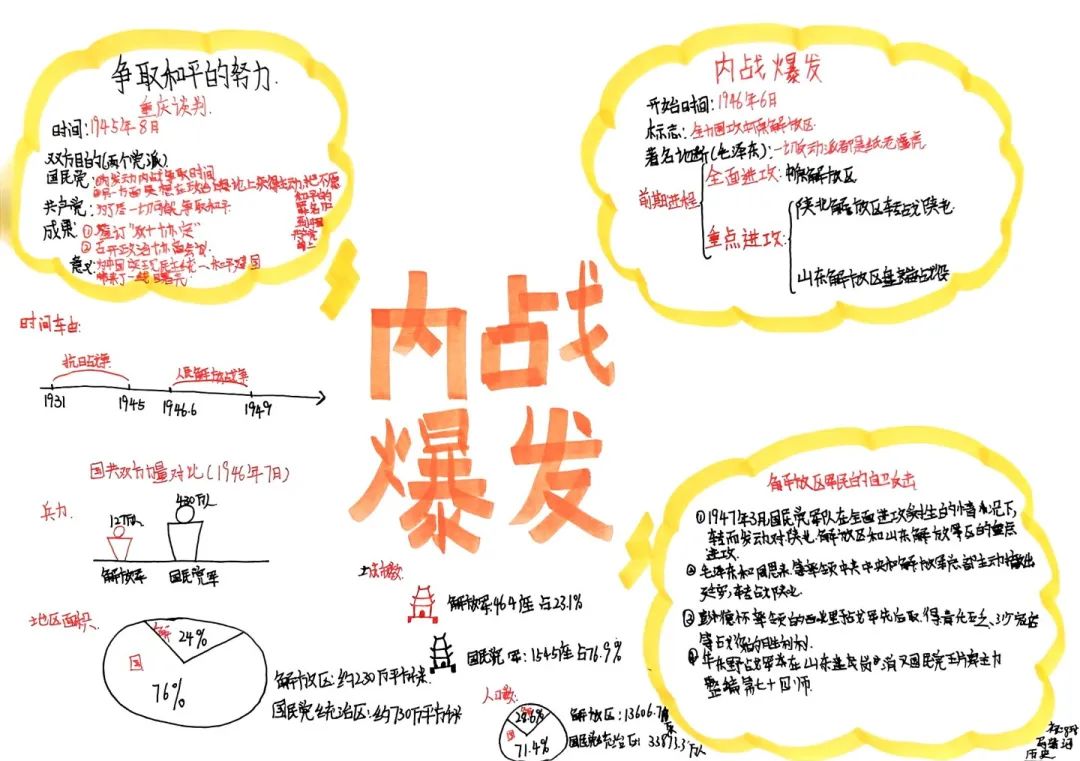 争取和平的努力.
重庆谈判.
时间:1945年8月
双方目的(两个党派)
国民党:为发动内战争取时间
共产党:为了尽一切可能争取和平
成果:①签订“双十协定”
②召开政治协商会议
意义:为中国实现民主统一、和平建国
带来了一线曙光.
内战爆发
开始时间:1946年6月
标志:全力围攻中原解放区
著名论断(毛泽东):一切反动派都是纸老虎
前期进程
全面进攻:中原解放区
重点进攻:
陕北解放区转战陕北
山东解放区孟良崮战役
内战
爆发
时间车由:
抗日战争
人民解放战争
1931
1945
1946.6
1949
国共双方力量对比(1946年7月)
兵力
430万人
解放军
国民党军
地区面积
解
24%
国
76%
解放区:约230万平方米
国民党统治区:约730万平方米
城市数
解放军464座占23.1%
国民党军:1545座占76.9%
人口数:
28.6%
国
71.4%
解放区:13606.7万
国民党统治区:33873.3万人
解放区军民的自卫攻击
①1947年3月国民党军队在全面进攻受挫的情况下,
转而发动对陕北解放区和山东解放区的重点
进攻.
②毛泽东和周恩来等率领中共中央和解放军总部主动撤出
延安,转战陕北.
③彭德怀率领的西北野战军先后取得青化砭、沙家店
等战役的胜利
④华东野战军在山东孟良崮消灭国民党王牌军主力
整编第七十四师.
历史